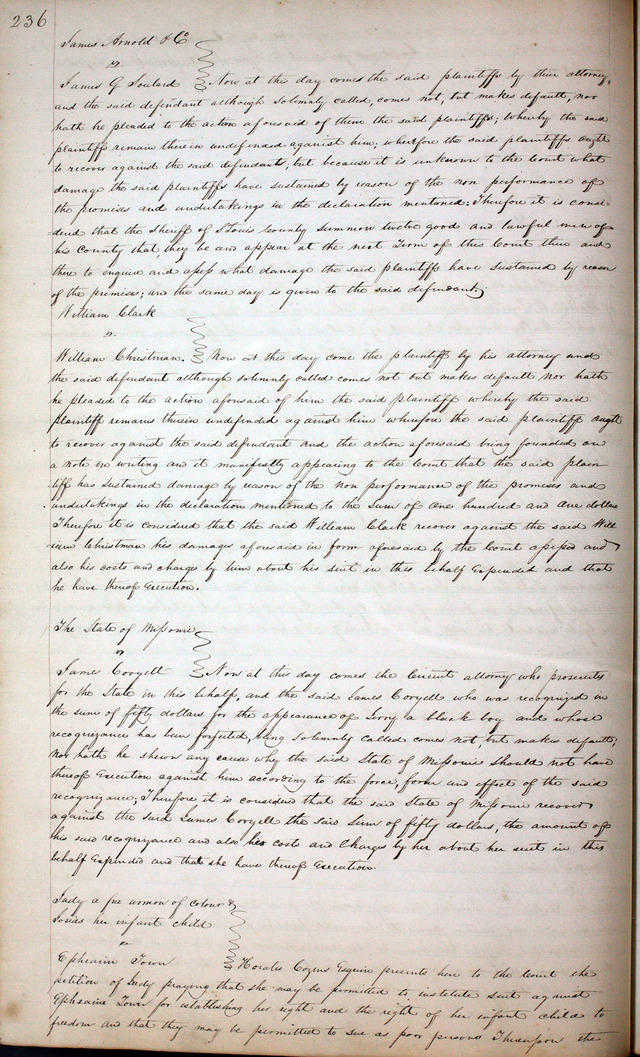 236
James Arnold & Co
vs
James G Soulard Now at this day comes the said plaintiffs by their attorney,
and the said defendant although solemnly called, comes not, but makes default, nor
hath he pleaded to the action aforesaid of them the said plaintiffs; Whereby the said
plaintiffs remain therein undefended against him, wherefore the said plaintiffs ought
to recover against the said defendants, but because it is unknown to the Court what
damage the said plaintiffs have sustained by reason of the non performance of
the promises and undertakings in the declaration mentioned: Therefore it is consi-
dered that the Sheriff of St Louis County summon twelve good and lawful men of
his County that they be and appear at the next Term of this Court then and
there to enquire and assess what damage the said plaintiffs have sustained by reason
of the premises; and the same day is given to the said defendant.
William Clark
vs.
William Christman. Now at this day come the plaintiff by his attorney and
the said defendant although solemnly called comes not but makes default nor hath
he pleaded to the action aforesaid of him the said plaintiff whereby the said
plaintiff remains therein undefended against him wherefore the said plaintiff ought
to recover against the said defendant and the action aforesaid being founded on
a note in writing and it manifestly appearing to the Court that the said plain
tiff has sustained damage by reason of the non performance of the promises and
undertakings in the declaration mentioned to the sum of one hundred and one dollars
Therefore it is considered that the said William Clark recover against the said Will
iam Christman his damages aforesaid in form aforesaid by the Court assessed and
also his costs and charges by him about his suit in this behalf Expended and that
he have thereof Execution.
The State of Missouri
vs
James Coryell Now at this day comes the Circuit attorney who prosecutes
for the State in this behalf, and the said James Coryell who was recognized in
the sum of fifty dollars for the appearance of Leroy a black boy and whose
recognizance has been forfeited, being solemnly called comes not, but makes default,
Nor hath he shewn any cause why the said State of Missouri should not have
thereof Execution against him according to the force, form and effect of the said
recognizance; Therefore it is considered that the said State of Missouri recover
against the said James Coryell the said Sum of fifty dollars, the amount of
his said recognizance and also her costs and Charges by her about her suit in this
behalf Expended and that she have thereof Execution.
Judy a free woman of colour &
Josias her infant child
vs
Ephraim Town Horatio Cozens Esquire presents here to the Court the
petition of Judy praying that she may be permitted to institute suit against
Ephraim Town for establishing her right and the right of her infant child to
freedom and that they may be permitted to sue as poor persons Thereupon the